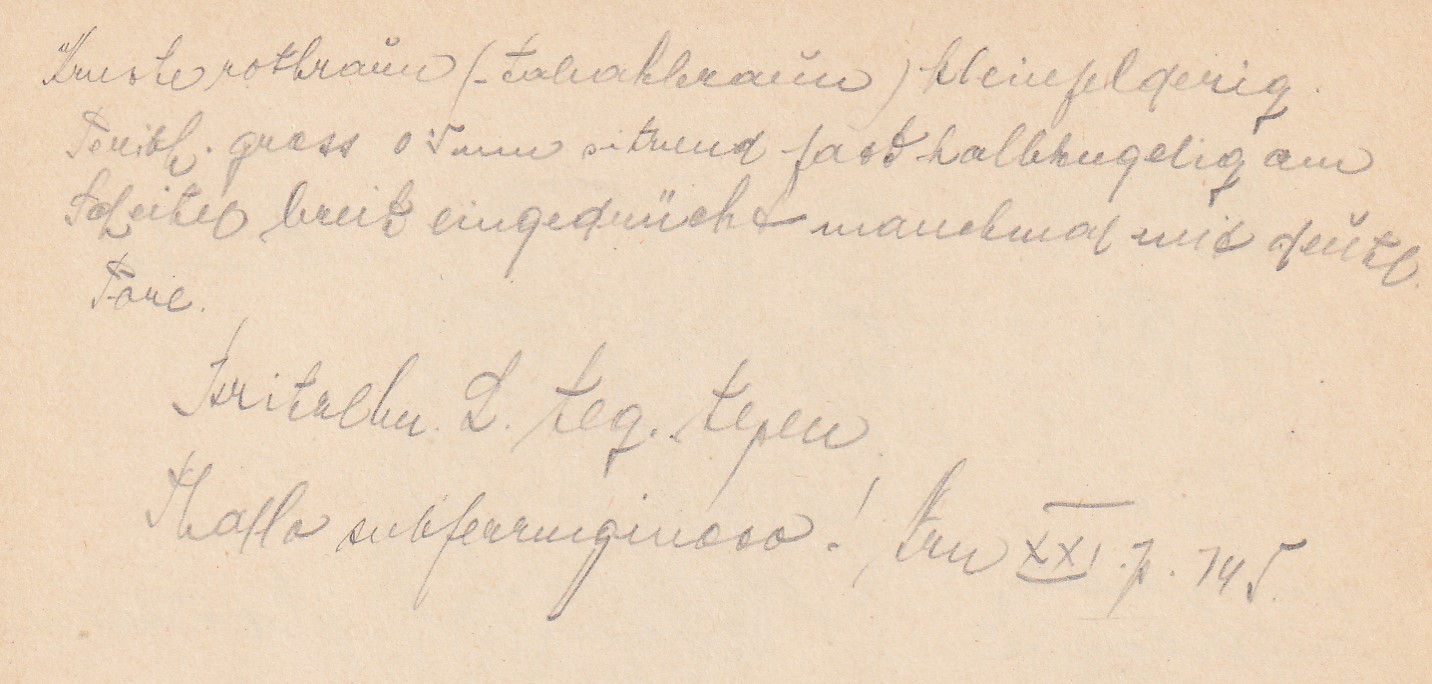 Kruste rotbraun (-tabakbraun) kleinfelderig.
Perith. gross 0.5mm sitzend fast halbkugelig am
Scheitel breit eingedrückt manchmal mit deutl.
Pore.
L. teg.
Thallo subferruginoso! Arn XXI. p. 145